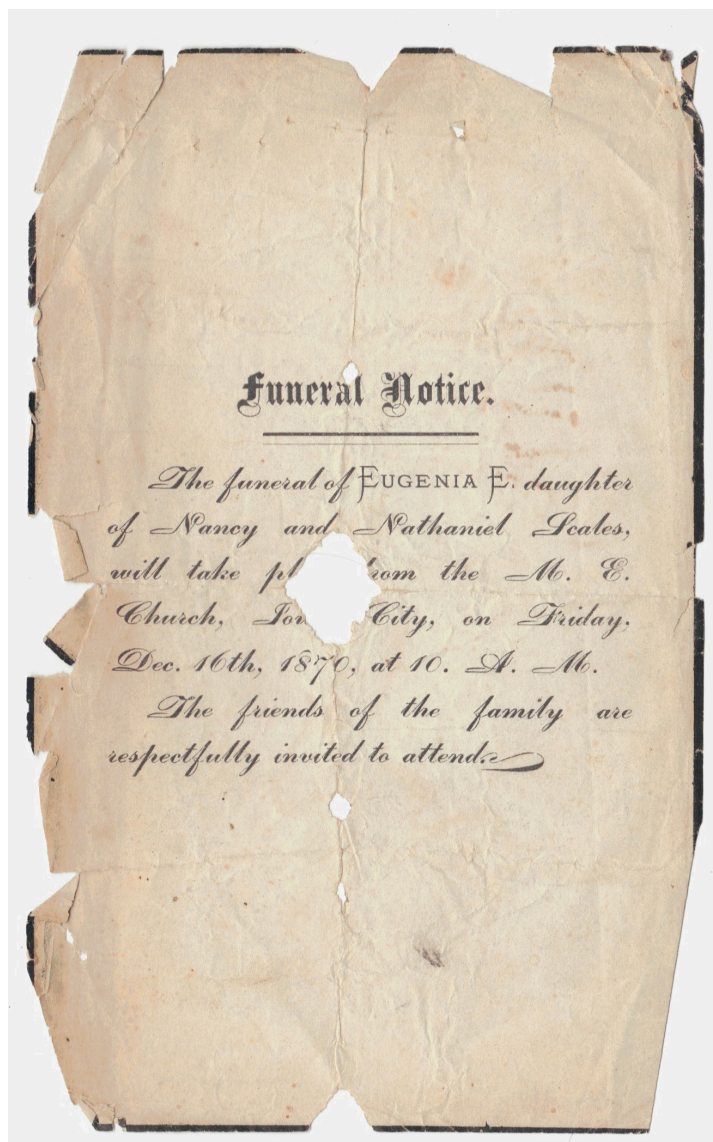 Funeral Notice.
The funeral of EUGENIA E. daughter
of Nancy and Nathaniel Scales,
will take from the M. E.
Church, City, on Friday,
Dec. 16th, 1870, at 10. A. M.
The friends of the family are
respectfully invited to attend.